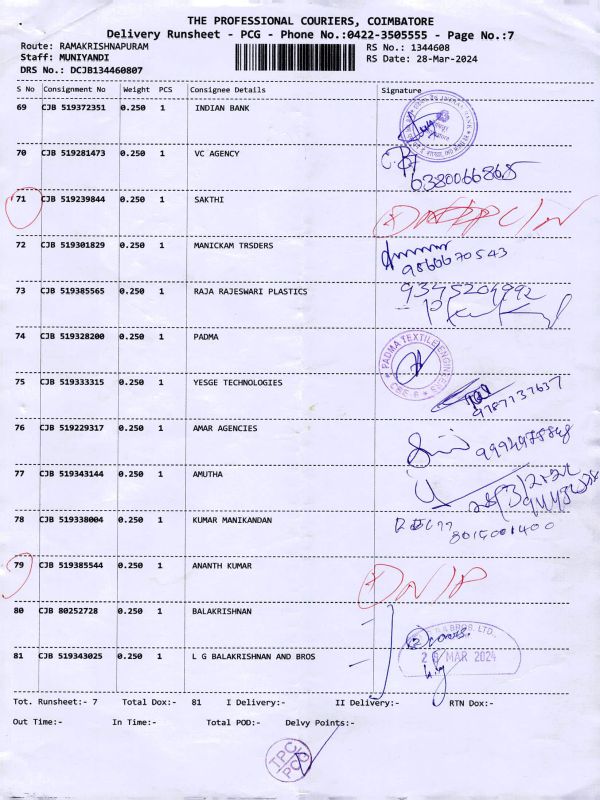 THE PROFESSIONAL COURIERS, COIMBATORE
Delivery Runsheet - PCG - Phone No.:0422-3505555 - Page No.:7
Route: RAMAKRISHNAPURAM RS No.: 1344608
Staff: MUNIYANDI RS Date: 28-Mar-2024
DRS No.: DCJB134460807
S No Consignment No Weight PCS Consignee Details Signature
69 CJB 519372351 0.250 1 INDIAN BANK
70 CJB 519281473 0.250 1 VC AGENCY
6380066865
71 CJB 519239844 0.250 1 SAKTHI
72 CJB 519301829 0.250 1 MANICKAM TRSDERS
9566670543
73 CJB 519385565 0.250 1 RAJA RAJESWARI PLASTICS 9345204992
74 CJB 519328200 0.250 1 PADMA
PADMA TEXTILE ENGINEERS
CBE-6
75 CJB 519333315 0.250 1 YESGE TECHNOLOGIES
9787137637
76 CJB 519229317 0.250 1 AMAR AGENCIES
77 CJB 519343144 0.250 1 AMUTHA
78 CJB 519338004 0.250 1 KUMAR MANIKANDAN
8015001400
79 CJB 519385544 0.250 1 ANANTH KUMAR
80 CJB 80252728 0.250 1 BALAKRISHNAN
BROS. LTD.
81 CJB 519343025 0.250 1 L G BALAKRISHNAN AND BROS
MAR 2024
Tot. Runsheet:- 7 Total Dox:- 81 I Delivery:- II Delivery:- RTN Dox:-
Out Time:- In Time:- Total POD:- Delvy Points:-
TPC
PCG